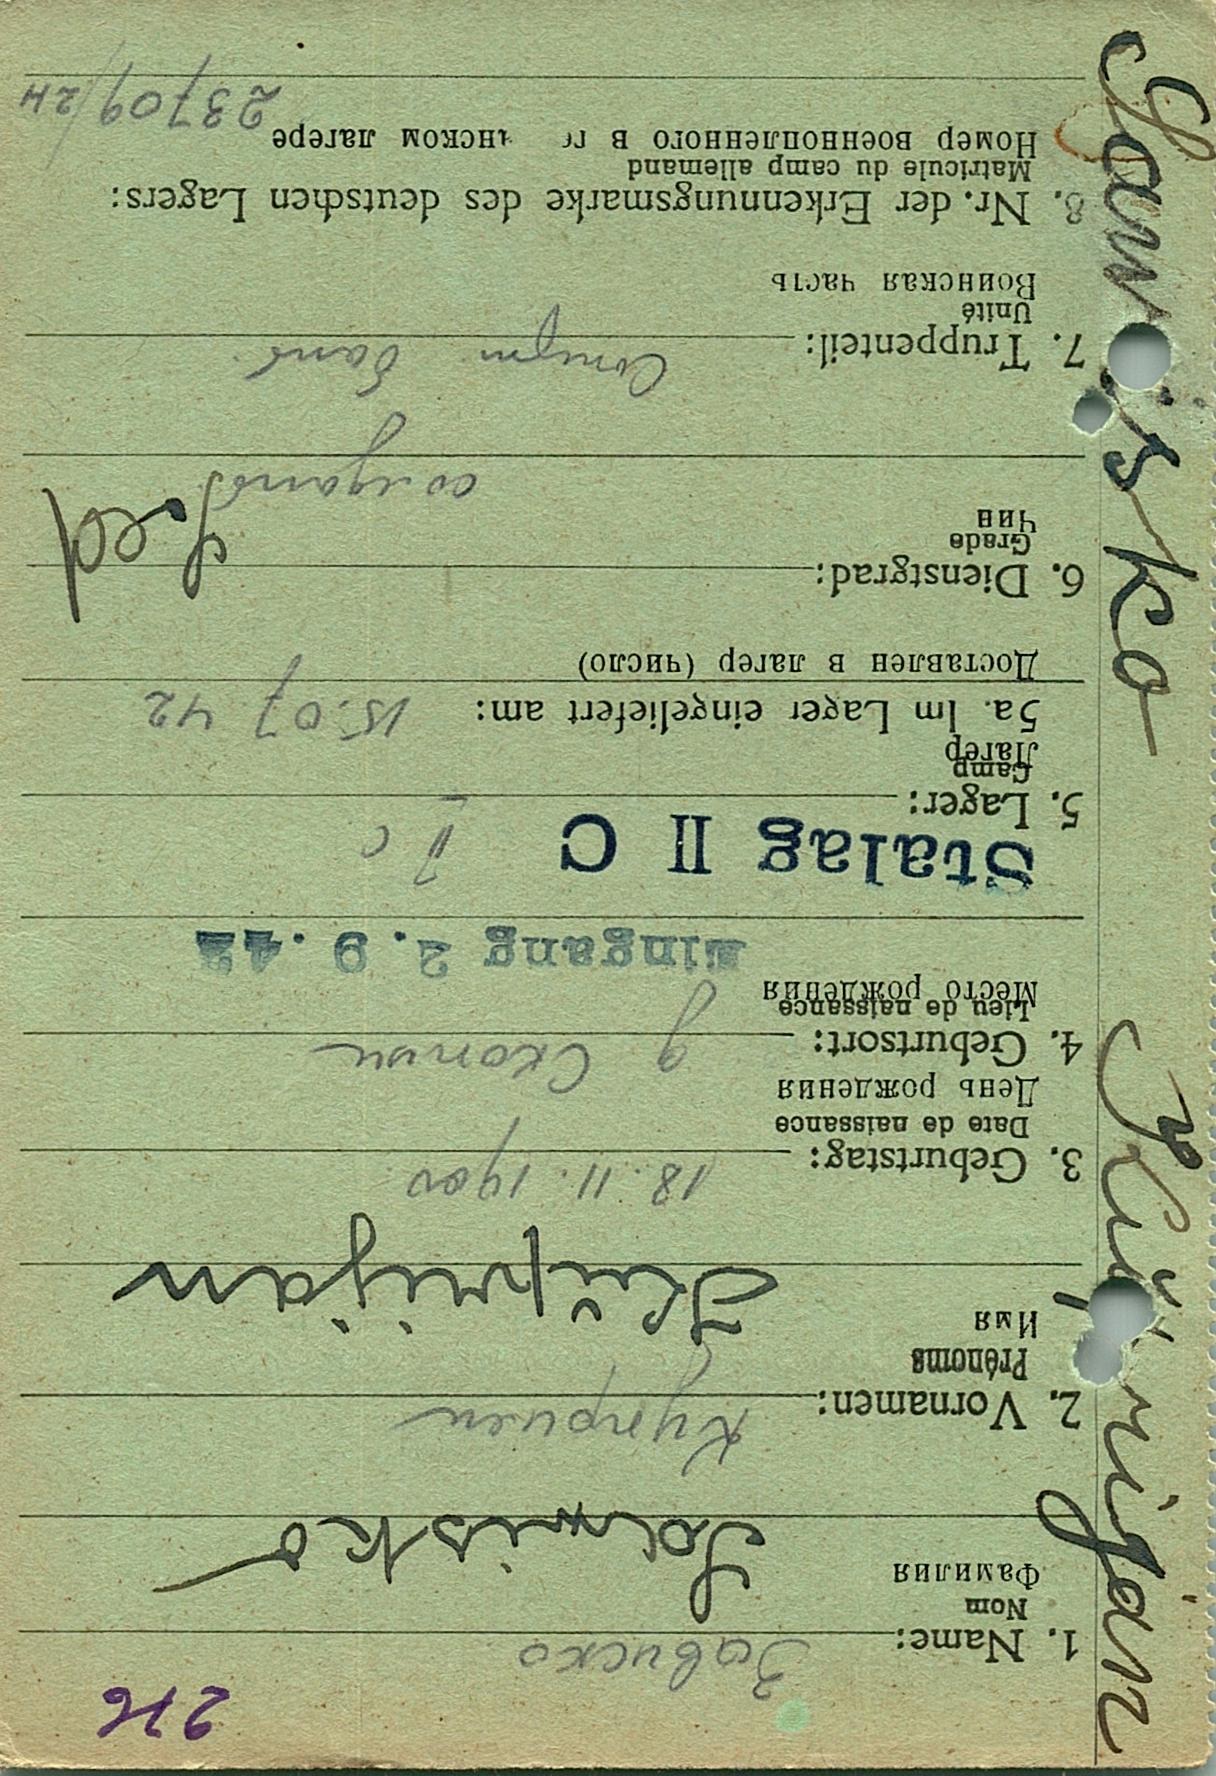 276
1. Name: Зависко
Nom
Фамилия
Sawisko
2. Vornamen: Куприен
Prénoms
Имя
Küprijan
3. Geburtstag: 18. 11. 1900
Date de naissance
День рождения
4. Geburtsort: д
Lieu de naissance
Место рождения
Eingang 2. 9. 42
Stalag II C
5. Lager: II C
Camp
Лагерь
5a. Im Lager eingeliefert am: 15. 07 42
Доставлен в лагер (число)
6. Dienstgrad: Sold
Grade
Чин
солдат
7. Truppenteil: бат
Unité
Воинская часть
8. Nr. der Erkennungsmarke des deutschen Lagers:
Matricule du camp allemand
Номер военнопленного в ге нском лагере
23709/2H
Sawisko Küprijan